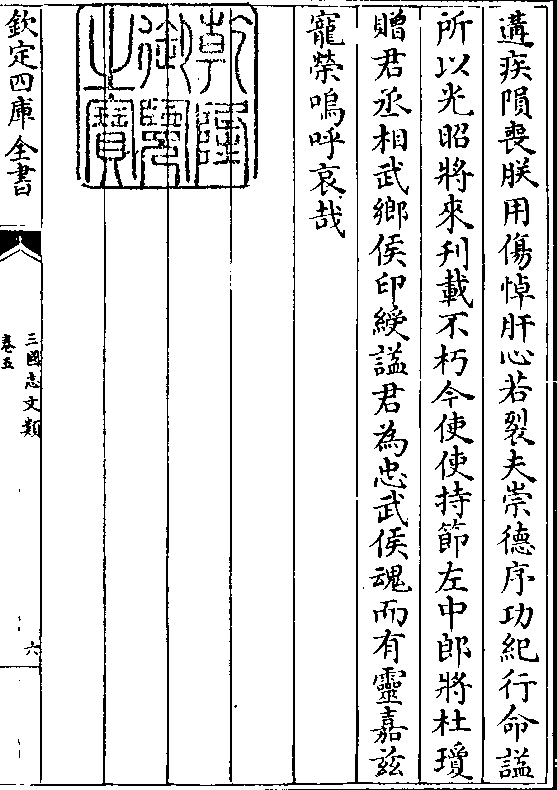 遘疾隕喪朕用傷悼肝心若裂夫崇德序功紀行命諡
所以光昭將來刋載不朽今使使持節左中郎將杜瓊
贈君丞相武鄉侯印綬諡君為忠武侯魂而有靈嘉兹
寵榮嗚呼哀哉
乾隆御覽之寶
欽定四庫全書
三國志文類
卷五
六